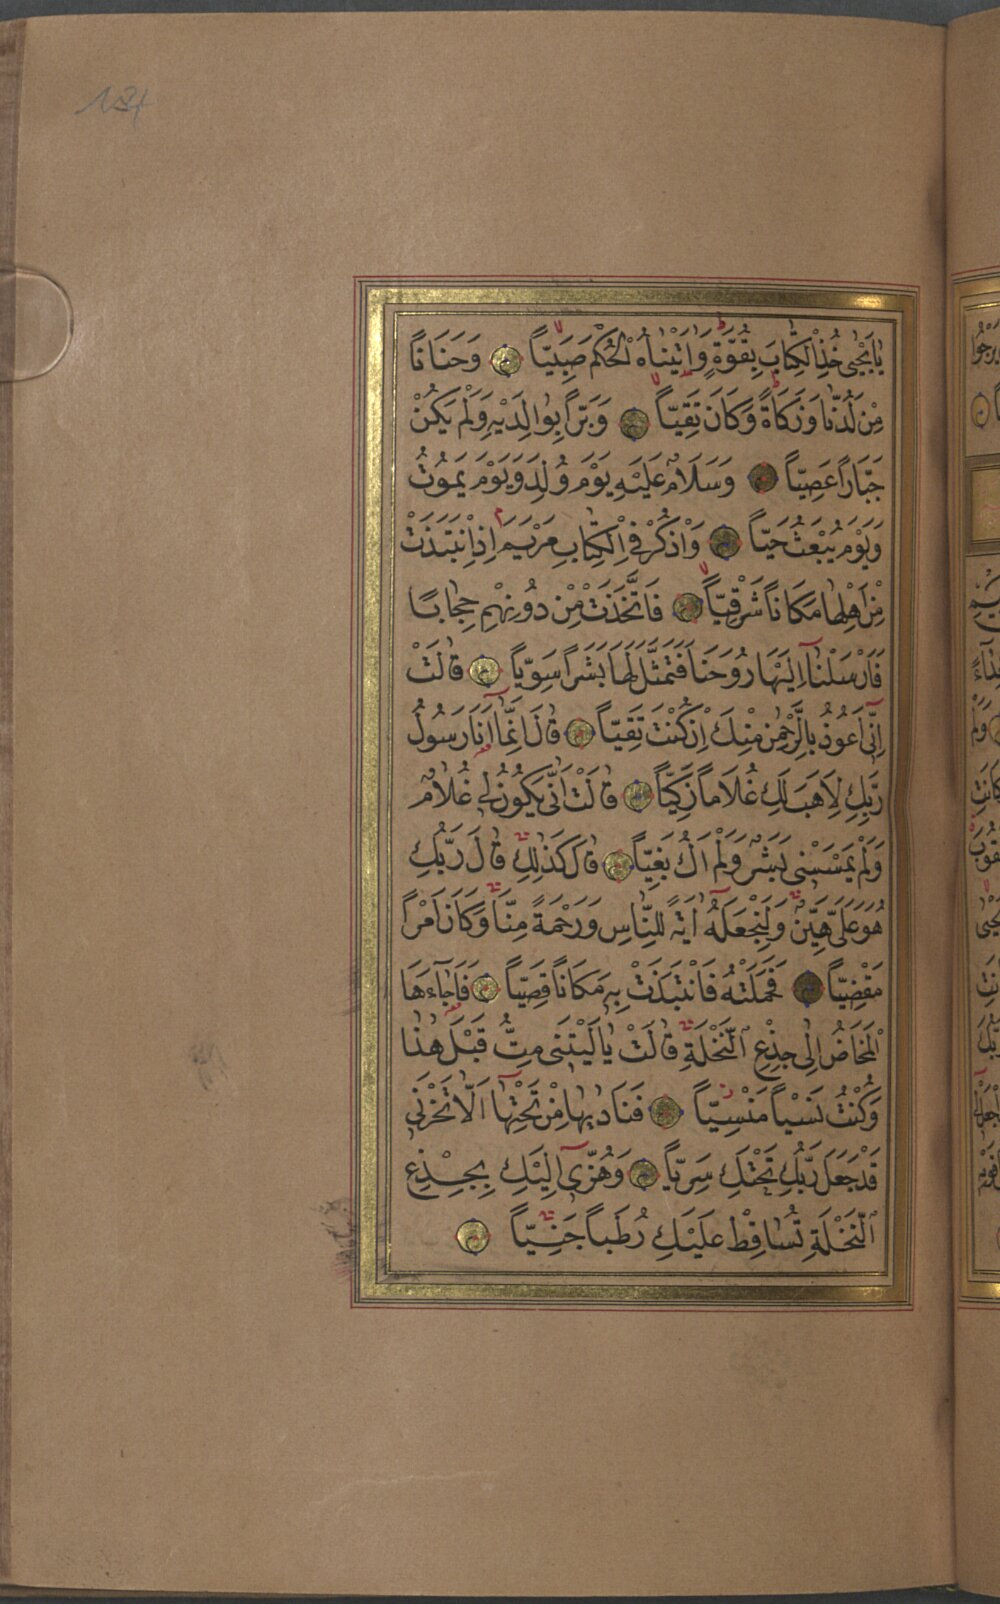 يَا يَحْيٰى خُذِ الْكِتَابَ بِقُوَّةٍ وَاٰتَيْنَاهُ الْحُكْمَ صَبِيّاً وَحَنَاناً
مِنْ لَدُنَّا وَزَكَاةً وَكَانَ تَقِيّاً وَبَرّاً بِوَالِدَيْهِ وَلَمْ يَكُنْ
جَبَّاراً عَصِيّاً وَسَلَامٌ عَلَيْهِ يَوْمَ وُلِدَ وَيَوْمَ يَمُوتُ
وَيَوْمَ يُبْعَثُ حَيّاً وَاذْكُرْ فِي الْكِتَابِ مَرْيَمَ اِذِ انْتَبَذَتْ
مِنْ اَهْلِهَا مَكَاناً شَرْقِيّاً فَاتَّخَذَتْ مِنْ دُونِهِمْ حِجَاباً
فَاَرْسَلْنَا اِلَيْهَا رُوحَنَا فَتَمَثَّلَ لَهَا بَشَراً سَوِيّاً قَالَتْ
اِنّٓى اَعُوذُ بِالرَّحْمٰنِ مِنْكَ اِنْ كُنْتَ تَقِيّاً قَالَ اِنَّمَٓا اَنَا رَسُولُ
رَبِّكِ لِاَهَبَ لَكِ غُلَاماً زَكِيّاً قَالَتْ اَنّٰى يَكُونُ لٖى غُلَامٌ
وَلَمْ يَمْسَسْنٖى بَشَرٌ وَلَمْ اَكُ بَغِيّاً قَالَ كَذٰلِكِ قَالَ رَبُّكِ
هُوَ عَلَىَّ هَيِّنٌ وَلِنَجْعَلَهُٓ اٰيَةً لِلنَّاسِ وَرَحْمَةً مِنَّا وَكَانَ اَمْراً
مَقْضِيّاً فَحَمَلَتْهُ فَانْتَبَذَتْ بِهٖ مَكَاناً قَصِيّاً فَاَجَٓاءَهَا
الْمَخَاضُ اِلٰى جِذْعِ النَّخْلَةِ قَالَتْ يَا لَيْتَنٖى مِتُّ قَبْلَ هٰذَا
وَكُنْتُ نَسْياً مَنْسِيّاً فَنَادٰيهَا مِنْ تَحْتِهَٓا اَلَّا تَحْزَنٖى
قَدْ جَعَلَ رَبُّكِ تَحْتَكِ سَرِيّاً وَهُزّٖٓى اِلَيْكِ بِجِذْعِ
النَّخْلَةِ تُسَاقِطْ عَلَيْكِ رُطَباً جَنِيّاً